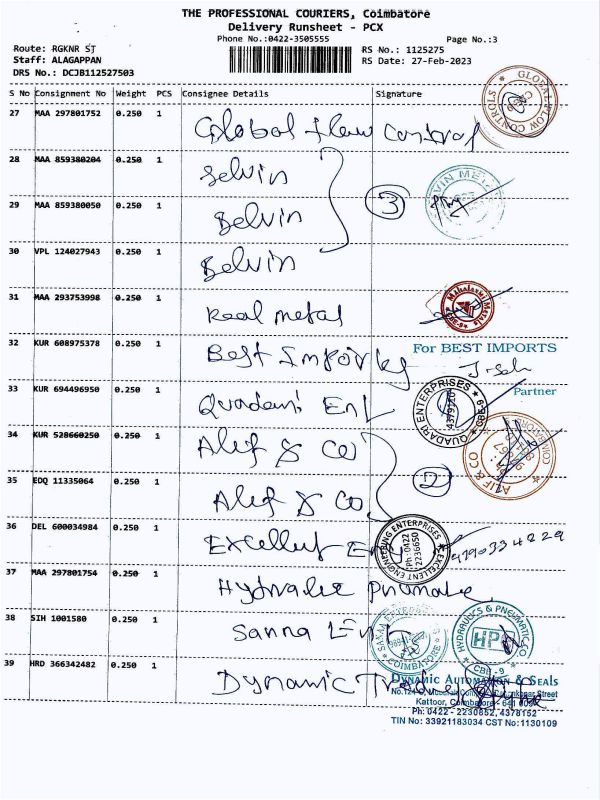 THE PROFESSIONAL COURIERS, Coimbatore
Delivery Runsheet - PCX
Phone No.:0422-3505555
Page No.:3
Route: RGKNR ST
Staff: ALAGAPPAN
DRS No.: DCJB112527503
RS No.: 1125275
RS Date: 27-Feb-2023
S No Consignment No Weight PCS Consignee Details Signature
27 MAA 297801752 0.250 1 Global flow control
GLOBAL FLOW CONTROLS
28 MAA 859380204 0.250 1 Selvin
29 MAA 859380050 0.250 1 Belvin
3
30 VPL 124027943 0.250 1 Belvin
31 MAA 293753998 0.250 1 Real metal
Mahalaxmi Metals
32 KUR 608975378 0.250 1 Best Imports
For BEST IMPORTS
Partner
33 KUR 694496950 0.250 1 Quadari Ent
QUADARI ENTERPRISES
4379120
34 KUR 528660250 0.250 1 Alif & Co
ALIF & CO
35 EDQ 11335064 0.250 1 Alif & Co
2
36 DEL 600034984 0.250 1 Excellent
EXCELLENT ENGINEERING ENTERPRISES
Ph:0422
2236650
37 MAA 297801754 0.250 1
38 SIH 1001580 0.250 1 Sanna Ent
COIMBATORE
HYDRAULICS & PNEUMATIC CO
HP
CBE-9
39 HRD 366342482 0.250 1 Dynamic
DYNAMIC AUTOMATION & SEALS
Street
Kattoor, Coimbatore - 641 009
Ph: 0422 - 2230652, 4378152
TIN No: 33921183034 CST No:1130109